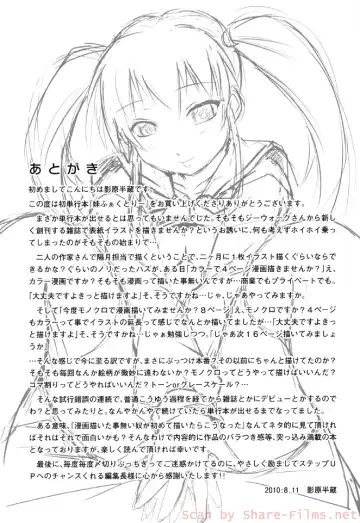 あとがき
初めましてこんにちは影原半蔵です。
この度は初単行本「妹ふぁくとりー」をお買い上げくださりありがとうございます。
まさか単行本が出せるとは思ってもいませんでした。そもそもジーウォークさんから新し
く創刊する雑誌で表紙イラストを描きませんか？というお誘いに、何も考えずホイホイ乗っ
てしまったのがそもそもの始まりで…。
二人の作家さんで隔月担当で描くということで、二ヶ月に１枚イラスト描くぐらいなら
できるかな？ぐらいのノリだったハズが、ある日「カラーで４ページ漫画描きませんか？」え、
カラー漫画ですか？そもそも漫画って描いた事無いんですが…商業でもプライベートでも。
「大丈夫ですよきっと描けますよ」そ、そうですかね…じゃ、じゃあやってみますか。
そして「今度モノクロで漫画描いてみませんか？８ページ」え、モノクロですか？４ページ
もカラーって事でイラストの延長って感じでなんとか描いてましたが…「大丈夫ですよきっ
と描けますよ」そ、そうですかね…じゃぁ勉強しつつ。「じゃあ次１６ページ描いてみましょ
うか」
…そんな感じで今に至る訳ですが、まさにぶっつけ本番？その以前にちゃんと描けてたのか？
そもそも毎回なんか絵柄が微妙に違わないか？モノクロってどうやって描けばいいんだ？
コマ割りってどうやればいいんだ？トーンorグレースケール？…
そんな試行錯誤の連続で、普通こうゆう過程を経てから雑誌とかにデビューとかするのでは
わ？と思ってみたりと、なんやかんやで続けていたら単行本が出せるまでなってました。
ある意味、「漫画描いた事無い奴が初めて描いたらこうなった」なんてネタ的に見て頂けれ
ばそれはそれで面白いかも？そんなわけで内容的に作品のバラつき感等、突っ込み満載の本
となっておりますが、楽しく読んで頂ければ幸いです。
最後に、毎度毎度〆切りぶっちぎってご迷惑かけてるのに、やさしく励ましてステップＵ
Ｐへのチャンスくれる編集長様に心から感謝いたします!!
2010:8.11　影原半蔵
Scan by Share-Films.net